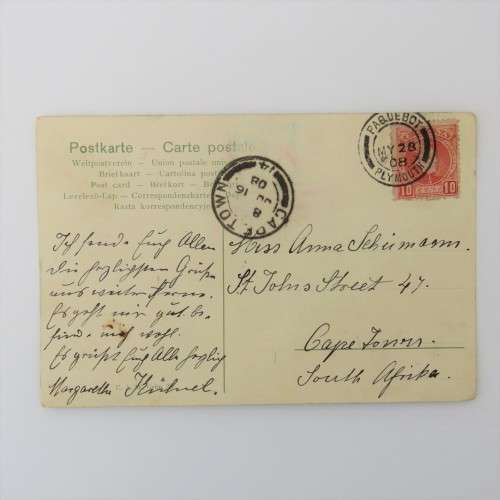 Postkarte — Carte postale
Weltpostverein — Union postale
Briefkaart — Cartolina
Post card — Brefkort
Levelezö-Lap — Correspondenzkarte
Karta korrespondencyjna
14
08
16
8
CAPE TOWN
PAQUEBOT
MY 28
08
PLYMOUTH
10 10
Ich sende Euch Allen
die herzlichsten Grüße
aus weiter Ferne.
Es geht mir gut, be-
finde mich wohl.
Es grüßt Euch Alle herzlich
Margarethe
Miss Anna Scheirmann.
St Johns Street 47.
Cape Town.
South Afrika.